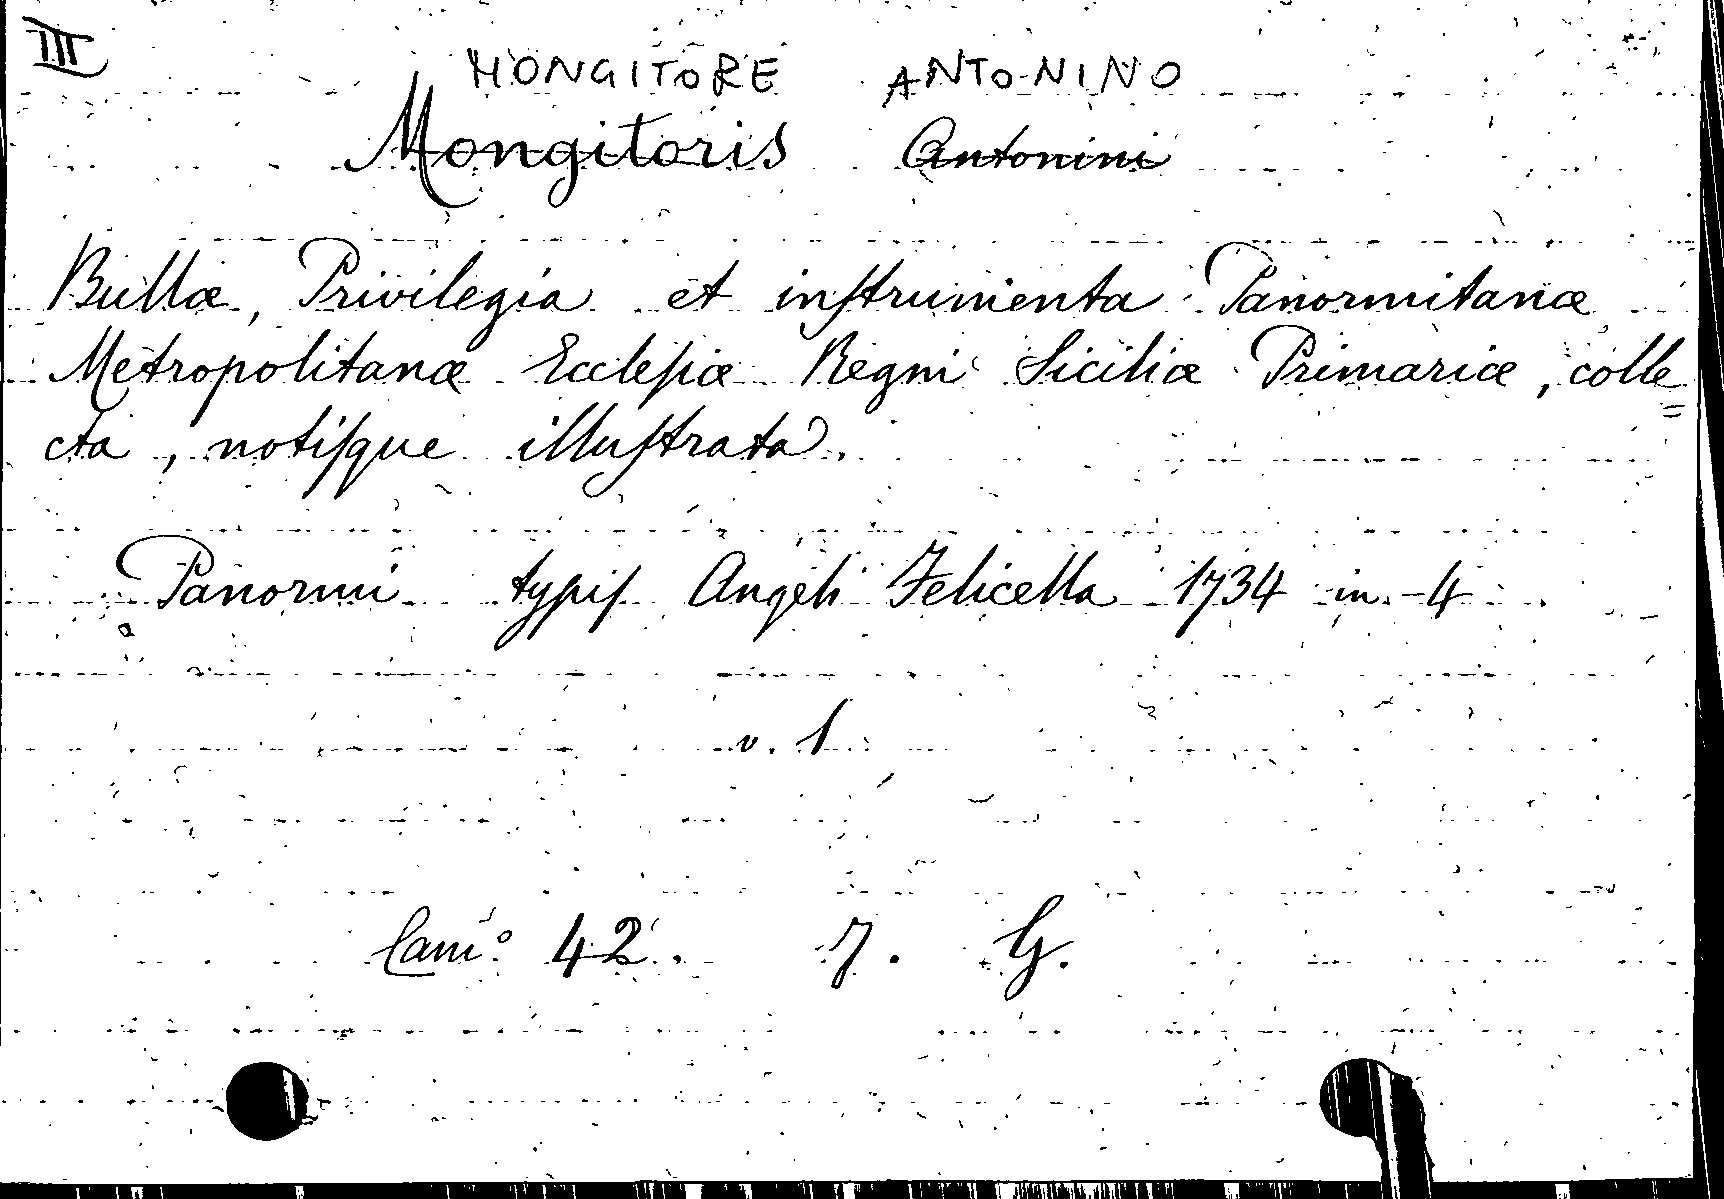 III
MONGITORE ANTONINO
Mongitoris Antonini
Bullæ, Privilegia et inſtrumenta Panormitanæ
Metropolitanæ Eccleſiæ Regni Siciliæ Primariæ, colle=
cta, notiſque illuſtrata.
Panormi typiſ Angeli Felicella 1734 in-4
v. 1
Cam.º 42. 7. G.